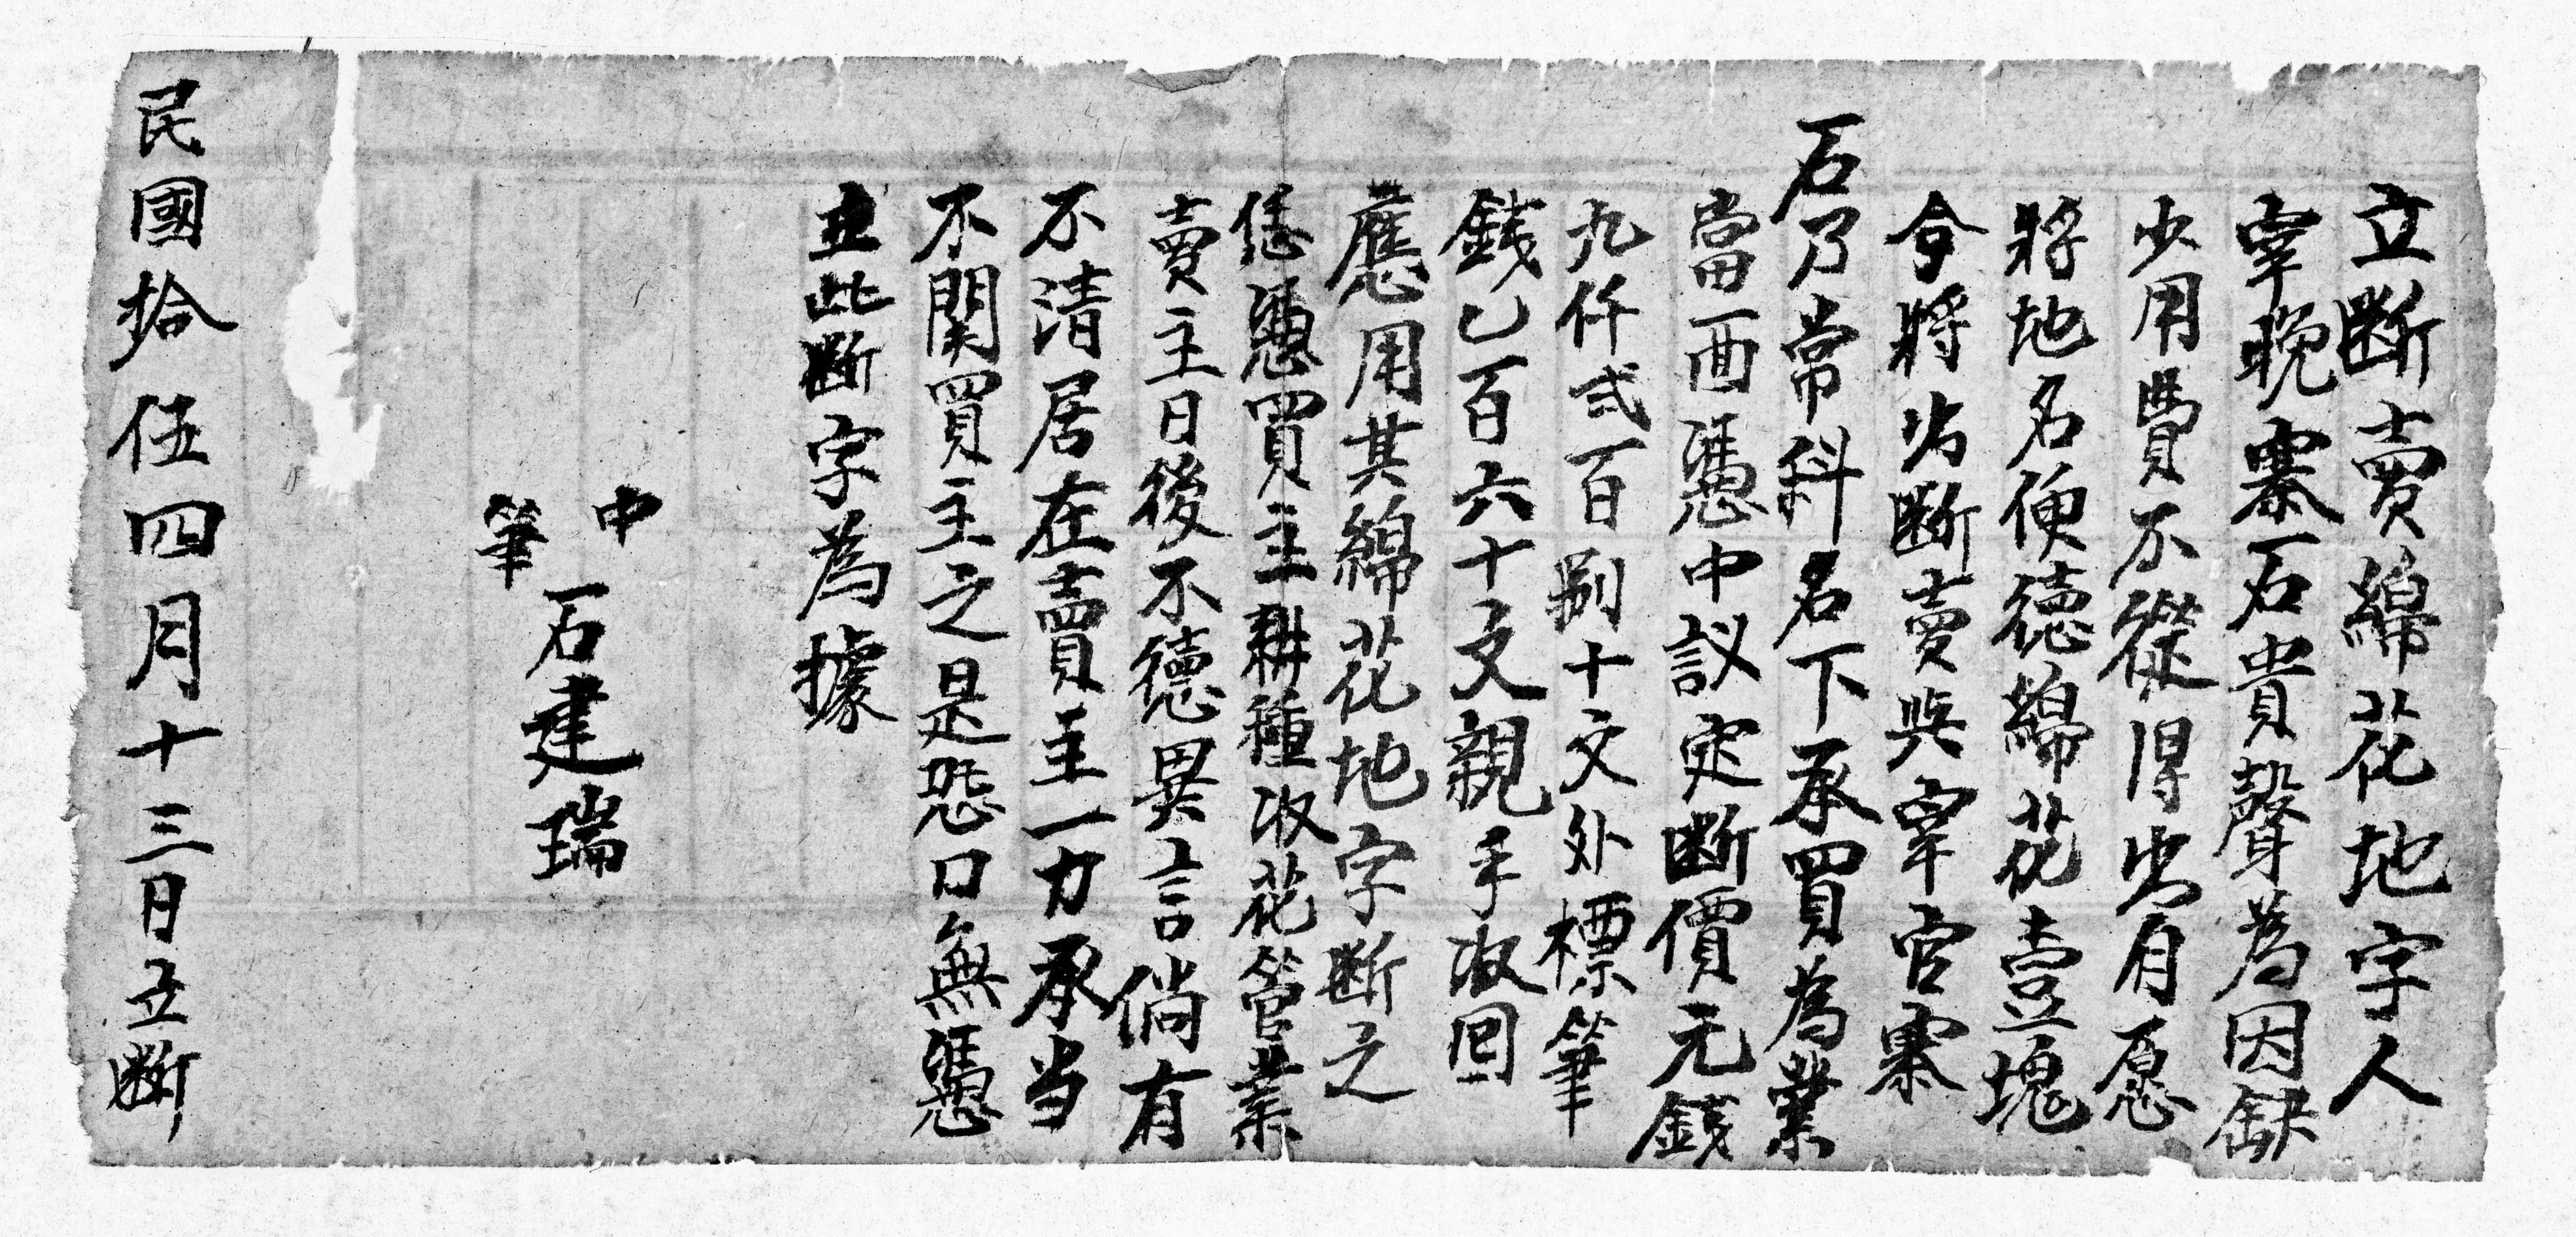 立斷賣綿花地字人
宰晚寨石貴聲為因缺
少用費不從得出自愿
將地名便德綿花壹塊
今將出斷賣與宰官寨
石乃常科名下承買為業
當面憑中議定斷價元錢
九仟弍百捌十文外標筆
錢乙百六十文親手收回
應用其綿花地字斷之
恁憑買主耕種收花管業
賣主日後不德異言倘有
不清居在賣主一力承当
不関買主之是恐口無憑
立此斷字為據
中
筆
石建瑞
民國拾伍四月十三日立斷